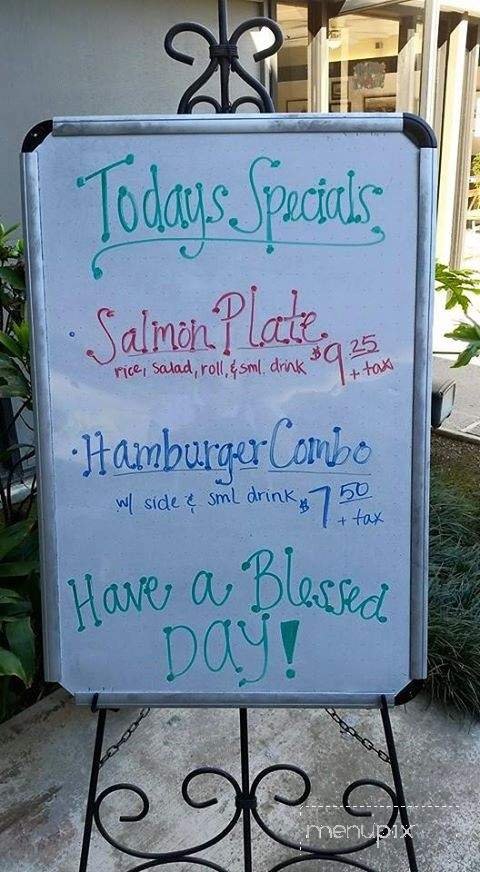 Todays Specials
• Salmon Plate
rice, salad, roll, & sml. drink $9.25
+ tax
• Hamburger Combo
w/ side & sml drink $7 50
+ tax
Have a Blessed
DAY!
menupix